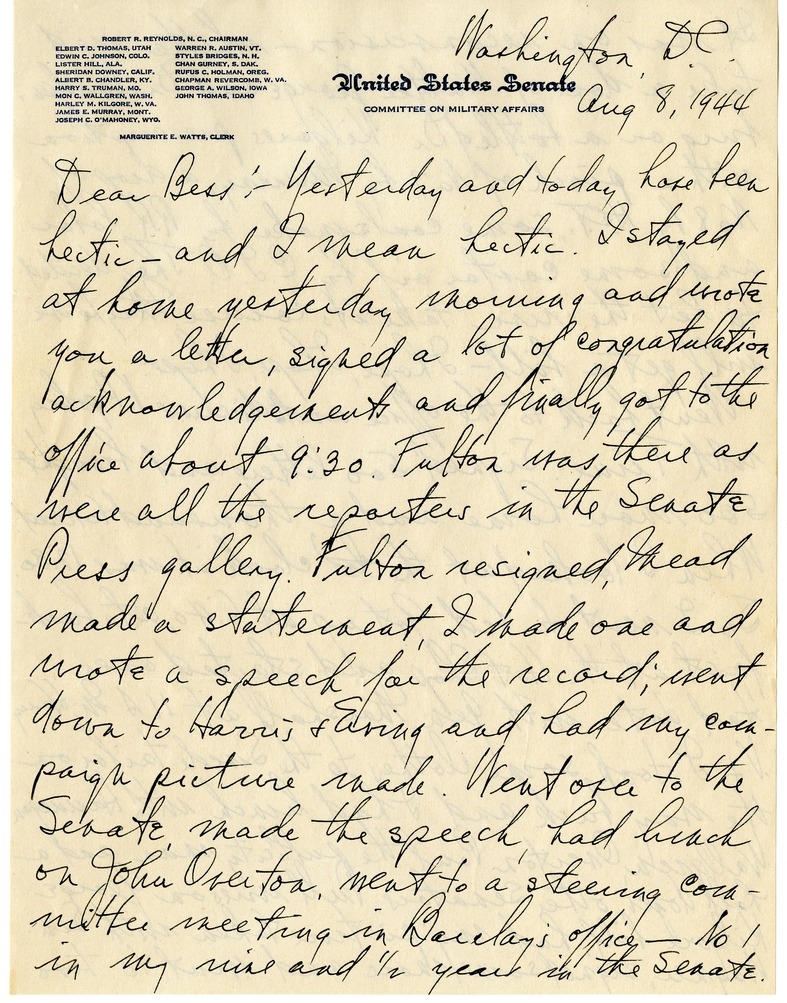 ROBERT R. REYNOLDS, N. C., CHAIRMAN
ELBERT D. THOMAS, UTAH
EDWIN C. JOHNSON, COLO.
LISTER HILL, ALA.
SHERIDAN DOWNEY, CALIF.
ALBERT B. CHANDLER, KY.
HARRY S. TRUMAN, MO.
MON C. WALLGREN, WASH.
HARLEY M. KILGORE, W. VA.
JAMES E. MURRAY, MONT.
JOSEPH C. O'MAHONEY, WYO.
WARREN R. AUSTIN, VT.
STYLES BRIDGES, N. H.
CHAN GURNEY, S. DAK.
RUFUS C. HOLMAN, OREG.
CHAPMAN REVERCOMB, W. VA.
GEORGE A. WILSON, IOWA
JOHN THOMAS, IDAHO
MARGUERITE E. WATTS, CLERK
United States Senate
COMMITTEE ON MILITARY AFFAIRS
Washington, D.C.
Aug 8, 1944
Dear Bess:- Yesterday and today have been
hectic - and I mean hectic. I stayed
at home yesterday morning and wrote
you a letter, signed a lot of congratulation
acknowledgements and finally got to the
office about 9:30. Fulton was there as
were all the reporters in the Senate
Press gallery. Fulton resigned, Mead
made a statement, I made one and
wrote a speech for the record; went
down to Harris & Ewing and had my cam-
paign picture made. Went over to the
Senate, made the speech, had lunch
on John Overton, went to a steering com-
mittee meeting in Barclay's office - No 1
in my nine and 1/2 years in the Senate.